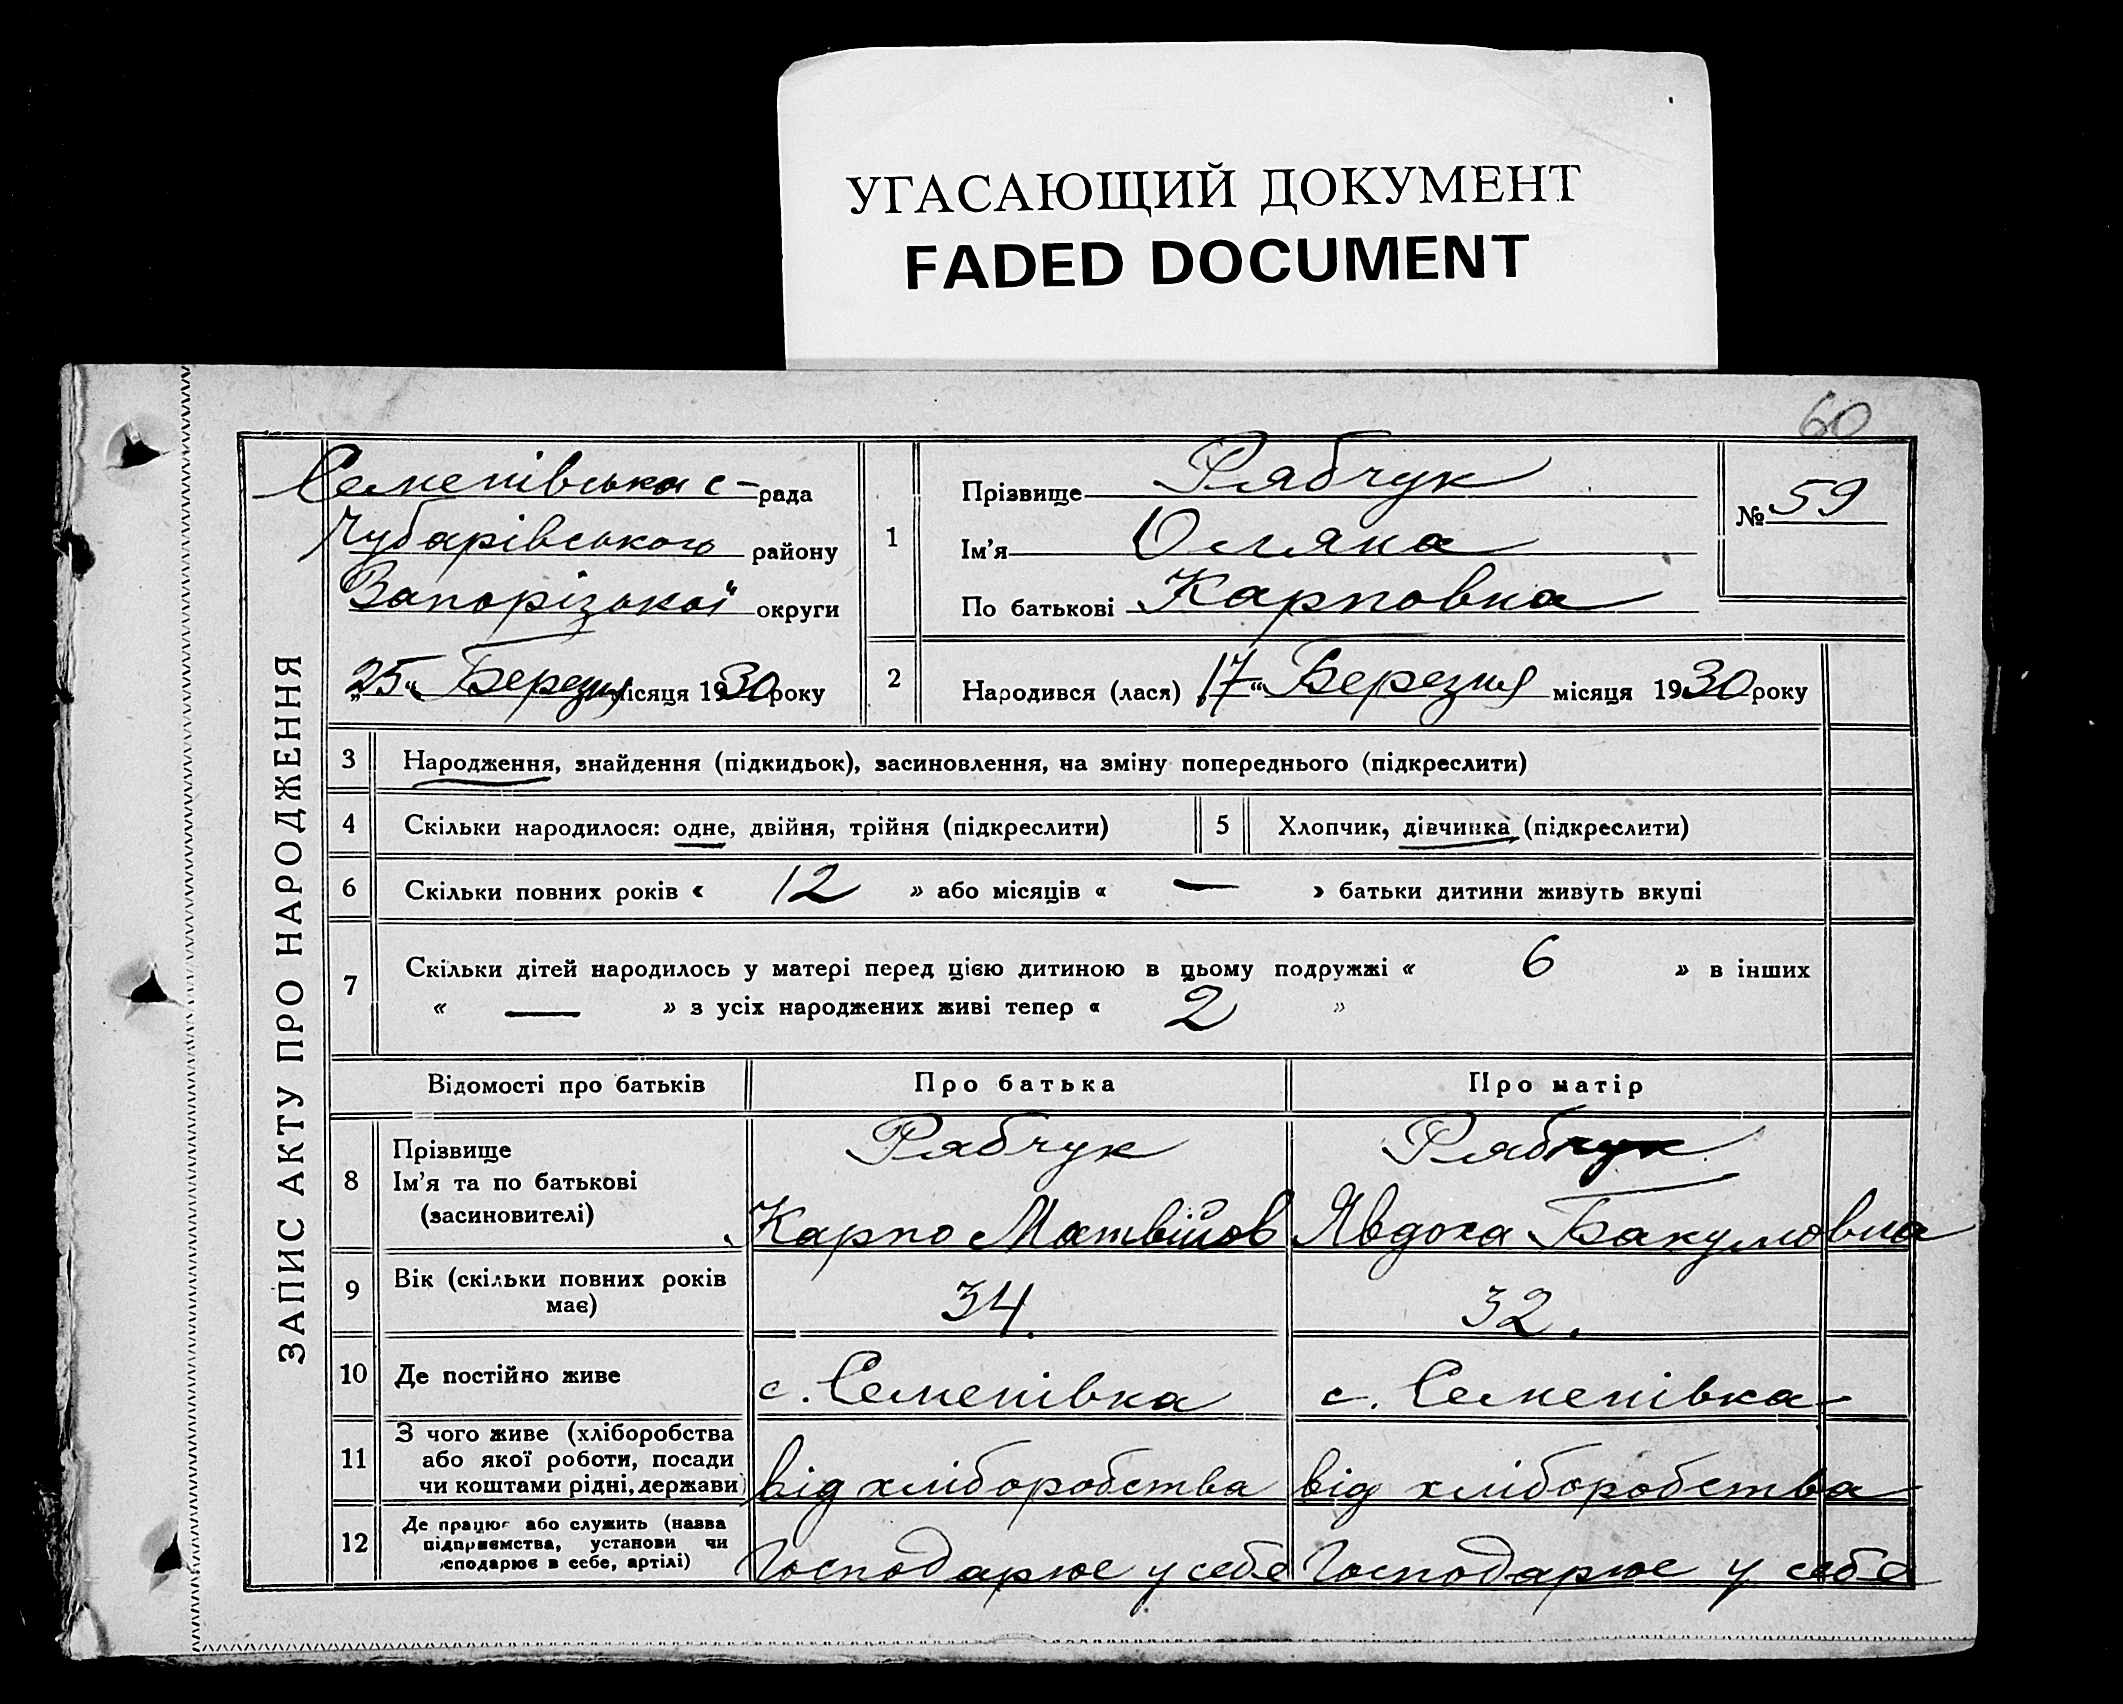 УГАСАЮЩИЙ ДОКУМЕНТ
FADED DOCUMENT
60
ЗАПИС АКТУ ПРО НАРОДЖЕННЯ
Семенівська с-рада
Чубарівського району
Запорізької округи
„25“ Березня місяця 1930 року
1
Прізвище Рябчук
Ім’я Оляна
По батькові Карповна
№ 59
2
Народився (лася) „17“ Березня місяця 1930 року
3 Народження, знайдення (підкидьок), засиновлення, на зміну попереднього (підкреслити)
4 Скільки народилося: одне, двійня, трійня (підкреслити)
5 Хлопчик, дівчинка (підкреслити)
6 Скільки повних років « 12 » або місяців « — » батьки дитини живуть вкупі
7 Скільки дітей народилось у матері перед цією дитиною в цьому подружжі « 6 » в інших
« — » з усіх народжених живі тепер « 2 »
Відомості про батьків Про батька Про матір
8
Прізвище
Ім’я та по батькові
(засиновителі)
Рябчук
Карпо Матвійов
Рябчук
Явдоха Бакумовна
9
Вік (скільки повних років
має)
34.
32.
10 Де постійно живе
с. Семенівка
с. Семенівка
11
З чого живе (хліборобства
або якої роботи, посади
чи коштами рідні, держави)
від хліборобства
від хліборобства
12
Де працює або служить (назва
підприємства, установи чи
господарює в себе, артілі)
Господарює у себе
Господарює у себе